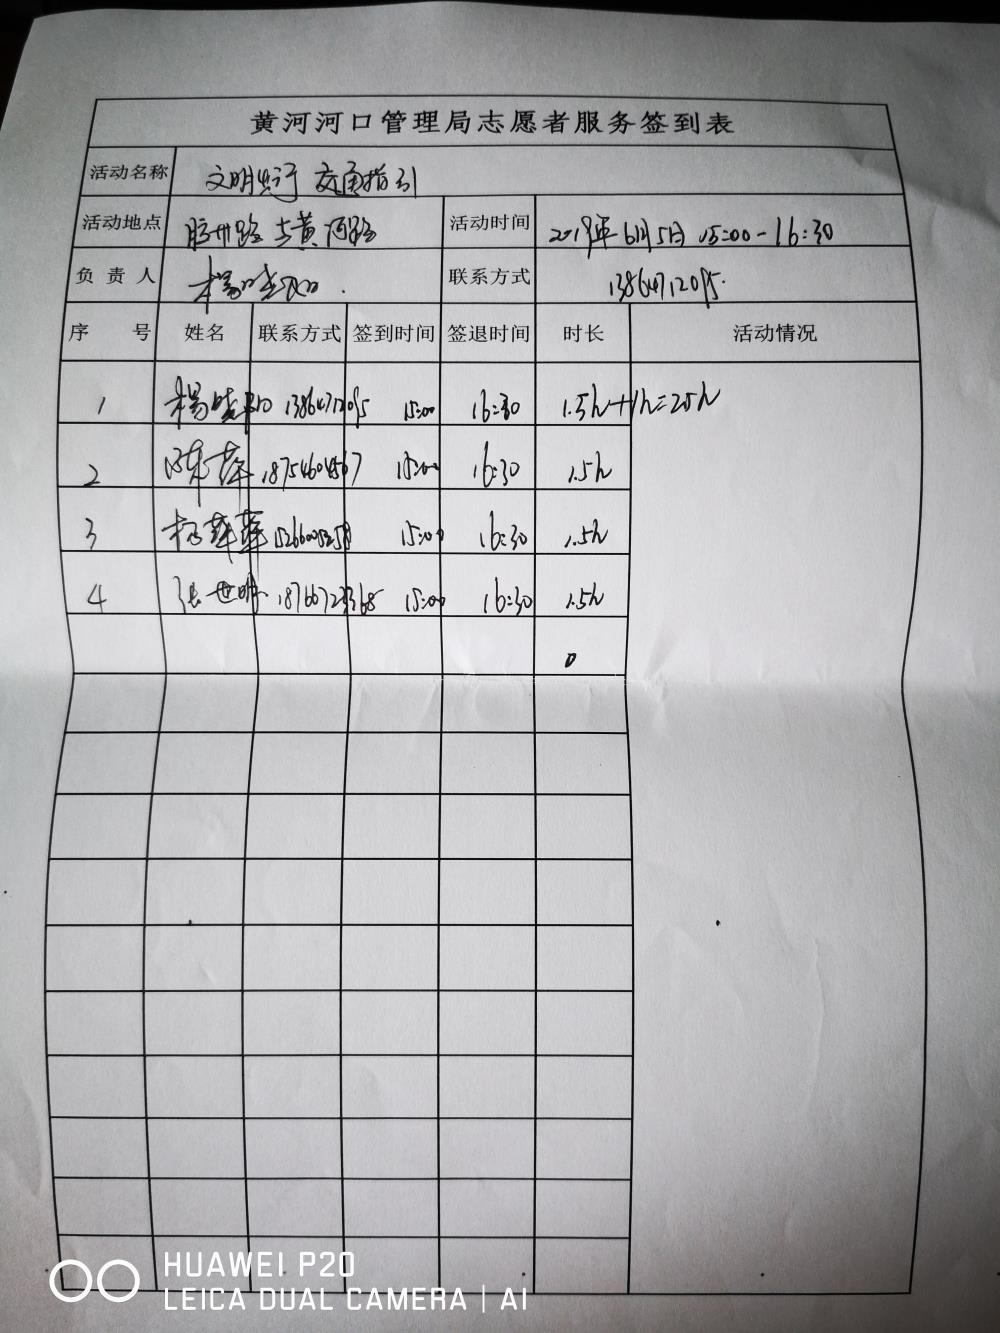 黄河河口管理局志愿者服务签到表
活动名称 文明出行 交通指引
活动地点 胶州路与黄河路 活动时间 2019年6月5日 15:00-16:30
负责人 联系方式 13864712095
序号 姓名 联系方式 签到时间 签退时间 时长 活动情况
1 13864712095 15:00 16:30 1.5h+1h=2.5h
2 陈萍 18754604567 15:00 16:30 1.5h
3 15:00 16:30 1.5h
4 张世明 15:00 16:30 1.5h
HUAWEI P20
LEICA DUAL CAMERA | AI